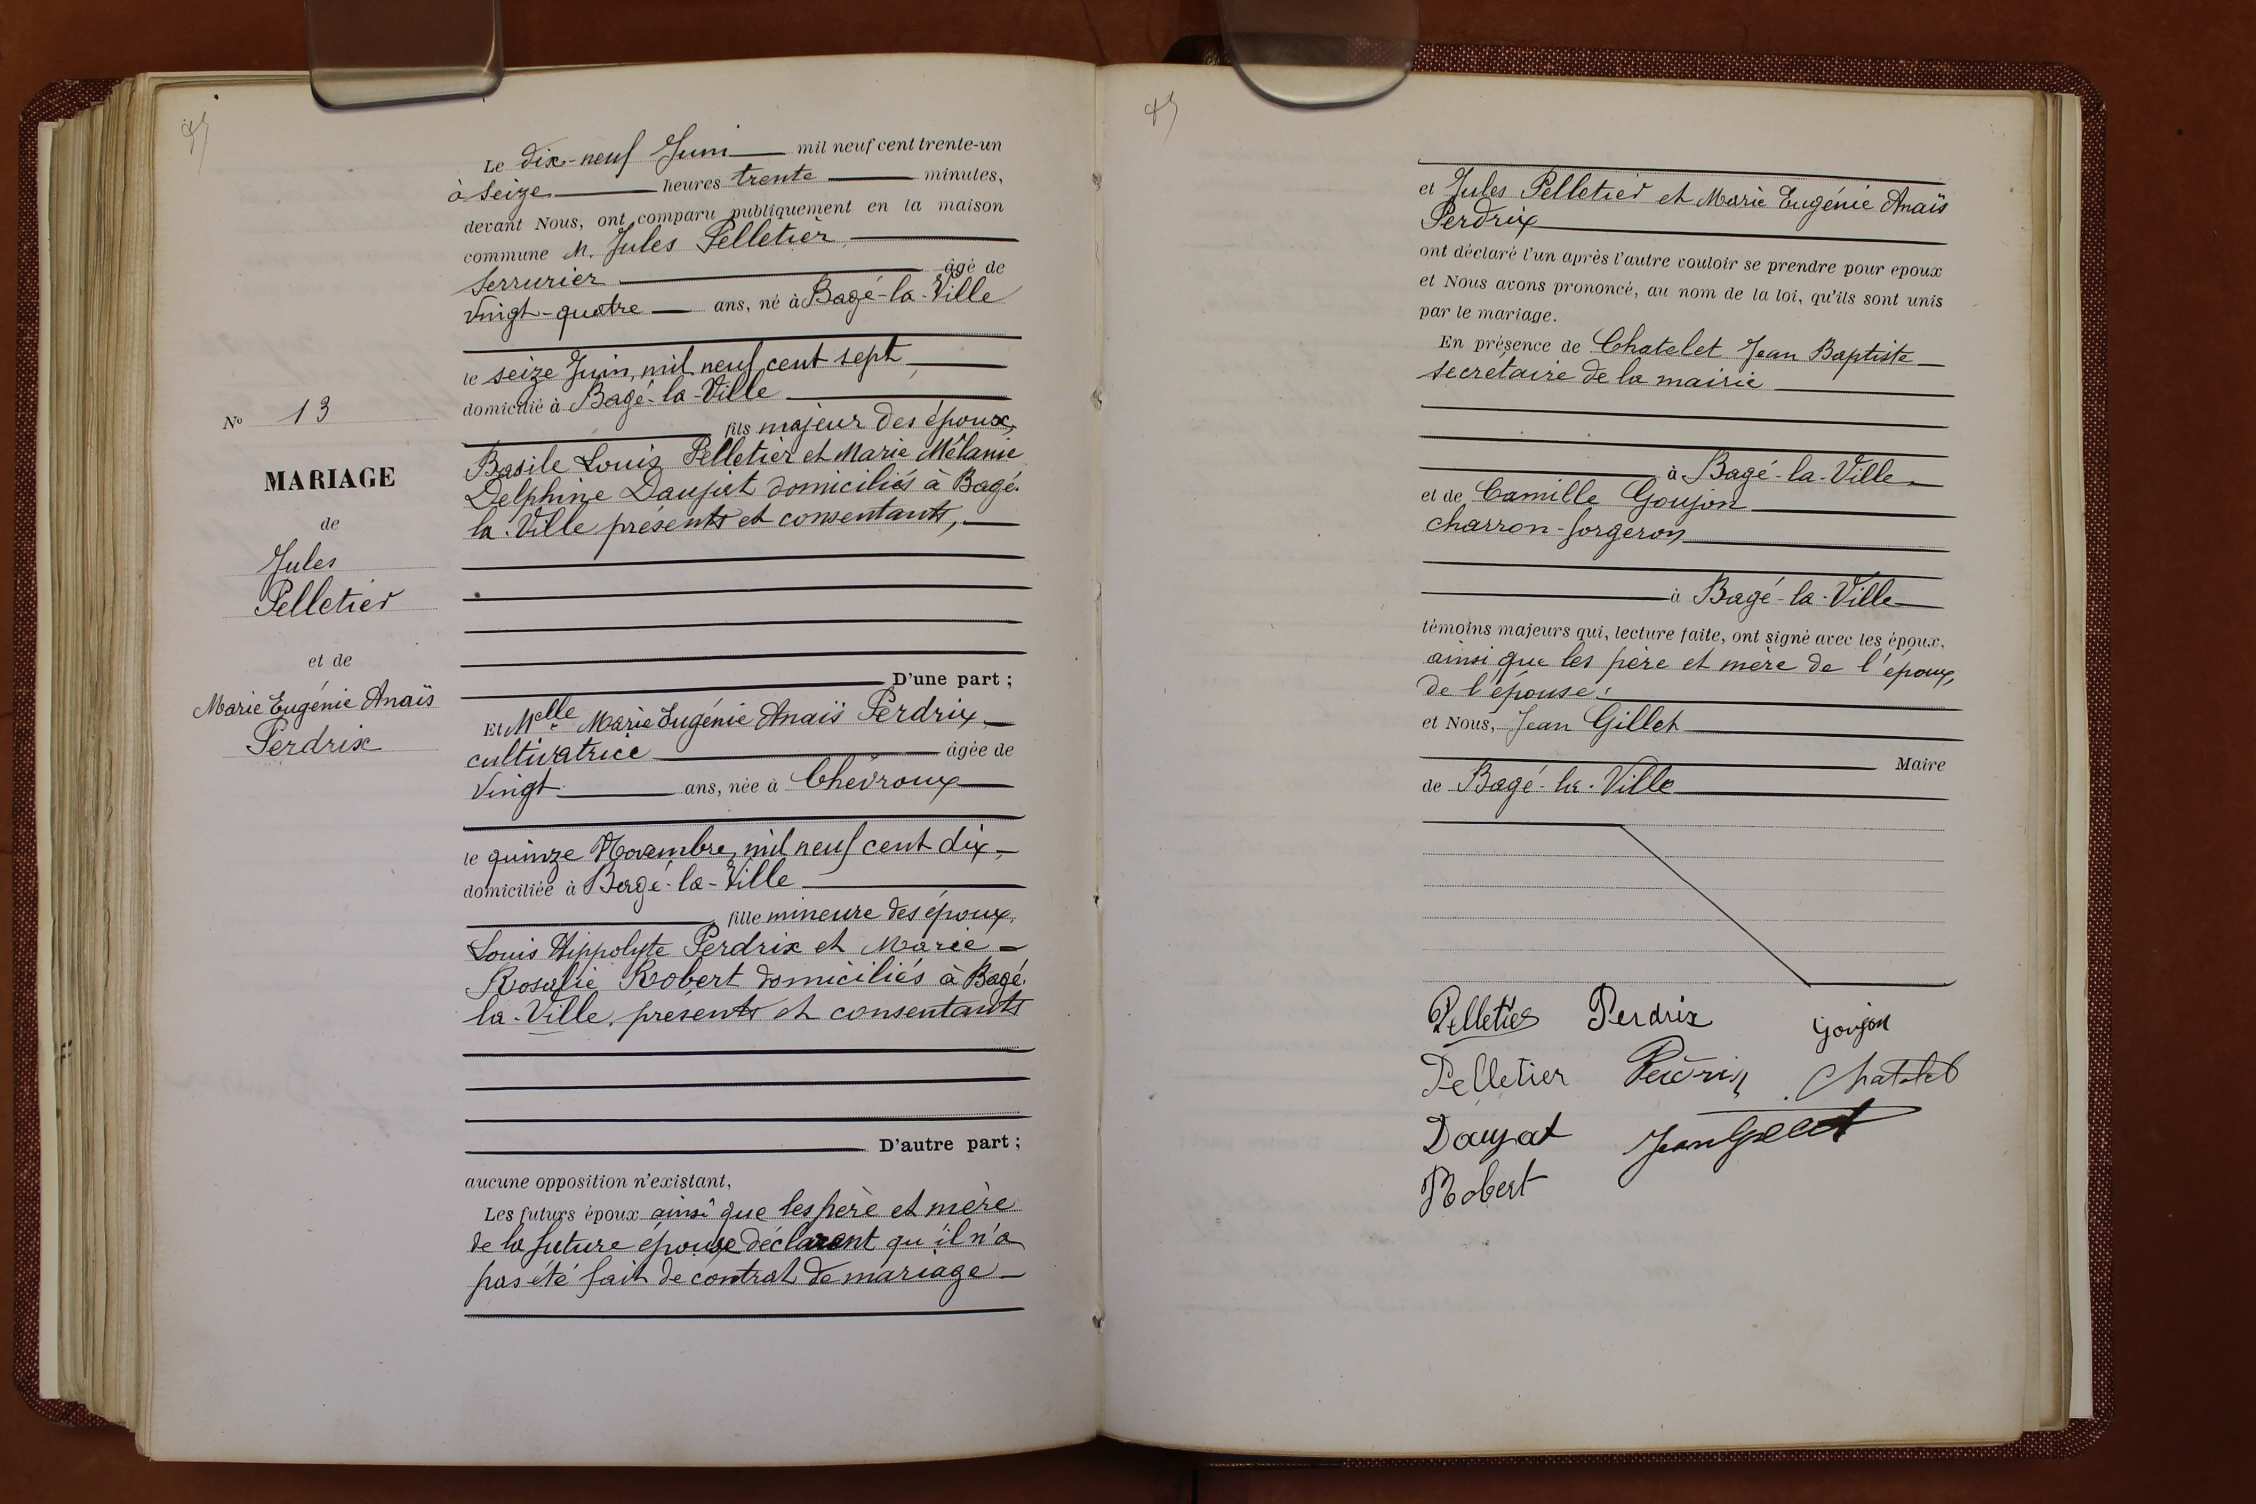 Le dix-neuf Juin mil neuf cent trente-un
à seize heures trente minutes,
devant Nous, ont comparu publiquement en la maison
commune M. Jules Pelletier
serrurier âgé de
vingt-quatre ans, né à Bagé-la-Ville
le seize Juin, mil neuf cent sept
domicilié à Bagé-la-Ville
fils majeur des époux,
Basile Louis Pelletier et Marie Mélanie
Delphine Daujat domiciliés à Bagé-
la-Ville présents et consentants,
D'une part ;
Et Melle Marie Eugénie Anaïs Perdrix
cultivatrice âgée de
vingt ans, née à Chevroux
le quinze Novembre, mil neuf cent dix,
domiciliée à Bagé-la-Ville
fille mineure des époux,
Louis Hippolyte Perdrix et Marie
Rosalie Robert domiciliés à Bagé-
la-Ville, présents et consentants
D'autre part ;
aucune opposition n'existant,
Les futurs époux ainsi que les père et mère
de la future épouse déclarent qu'il n'a
pas été fait de contrat de mariage
No 13
MARIAGE
de
Jules
Pelletier
et de
Marie Eugénie Anaïs
Perdrix
et Jules Pelletier et Marie Eugénie Anaïs
Perdrix
ont déclaré l'un après l'autre vouloir se prendre pour époux
et Nous avons prononcé, au nom de la loi, qu'ils sont unis
par le mariage.
En présence de Chatelet Jean Baptiste
secrétaire de la mairie
à Bagé-la-Ville
et de Camille Goujon
charron-forgeron
à Bagé-la-Ville
témoins majeurs qui, lecture faite, ont signé avec les époux,
ainsi que les père et mère de l'époux,
de l'épouse
et Nous, Jean Gillet
Maire
de Bagé-la-Ville
Pelletier Perdrix Goujon
Pelletier Perdrix Chatelet
Daujat Jean Gillet
Robert